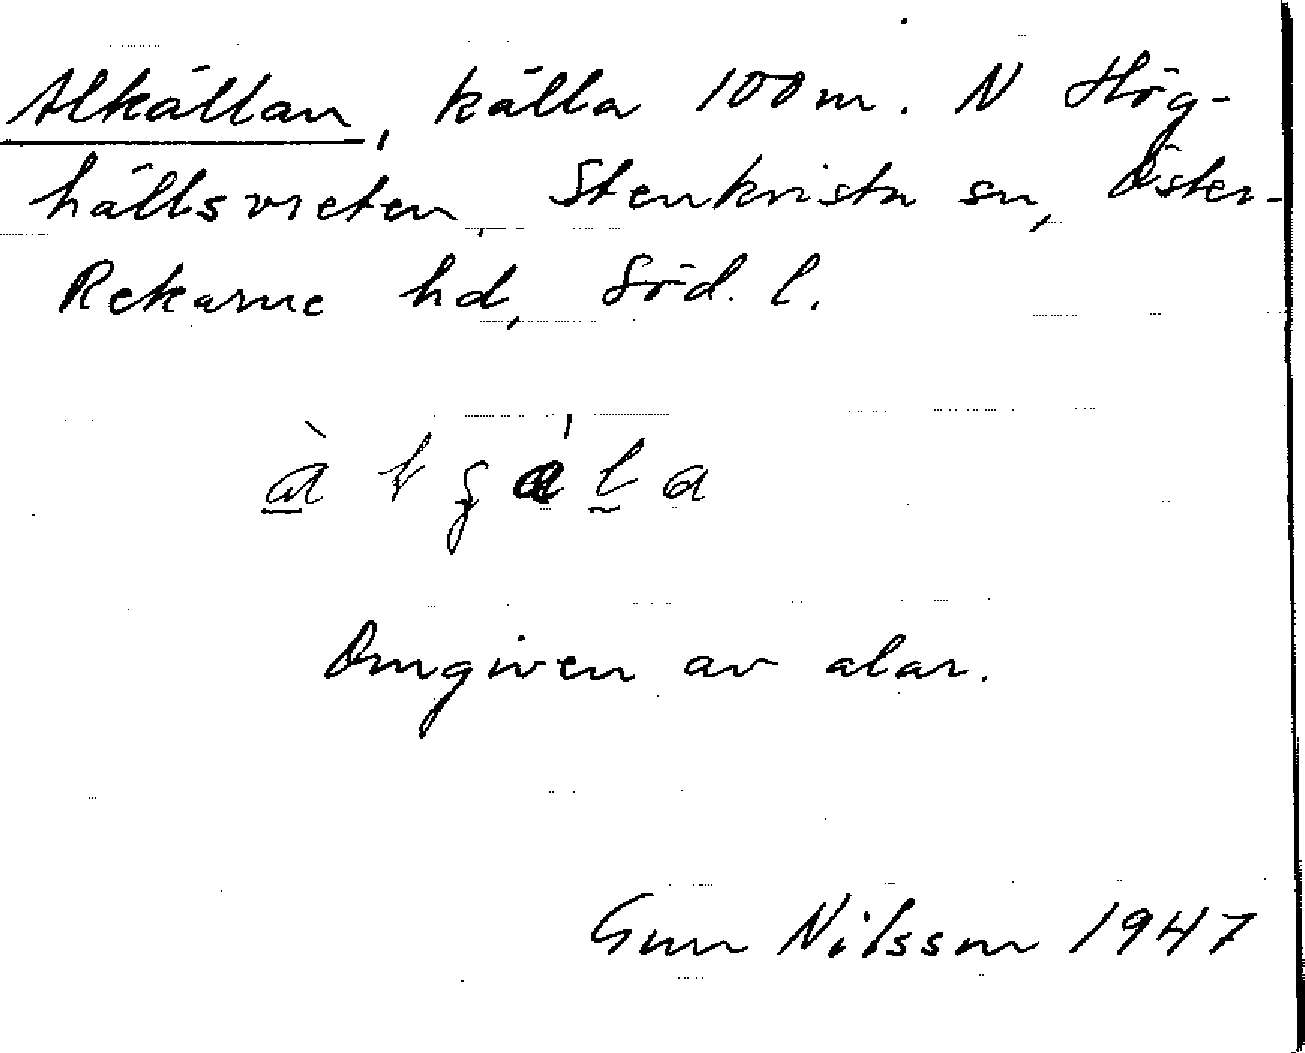 Alkällan, källa 100 m. N Hög-
hällsvreten, Stenkvista sn, Öster-
Rekarne hd, Söd. l.
Omgiven av alar.
Gun Nilsson 1947